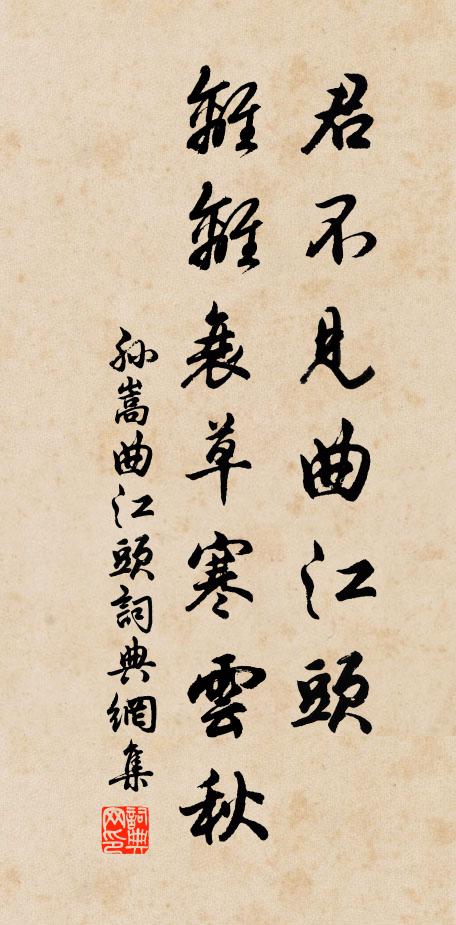 君不見曲江頭
離離衰草寒雲秋
孫嵩曲江頭詞典網集
詞典网印